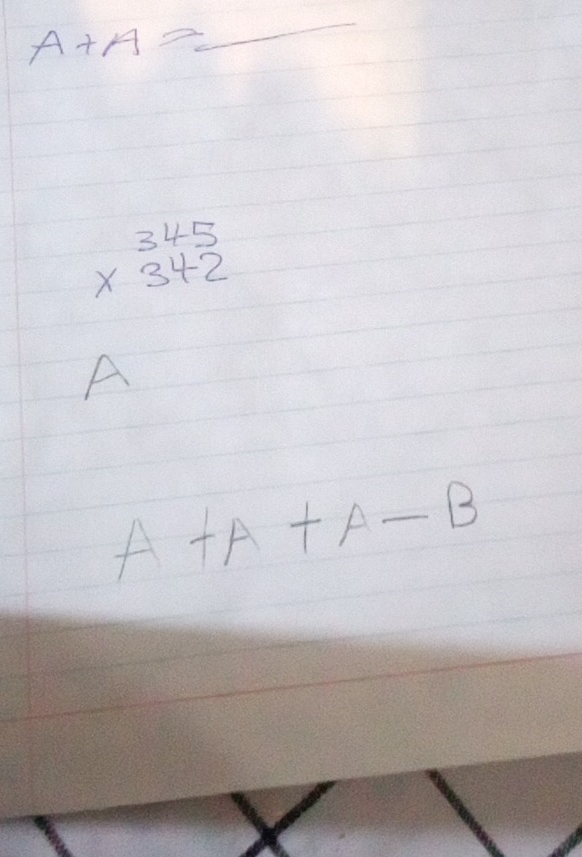 A+A=
345
x 342
A
A+A+A-B